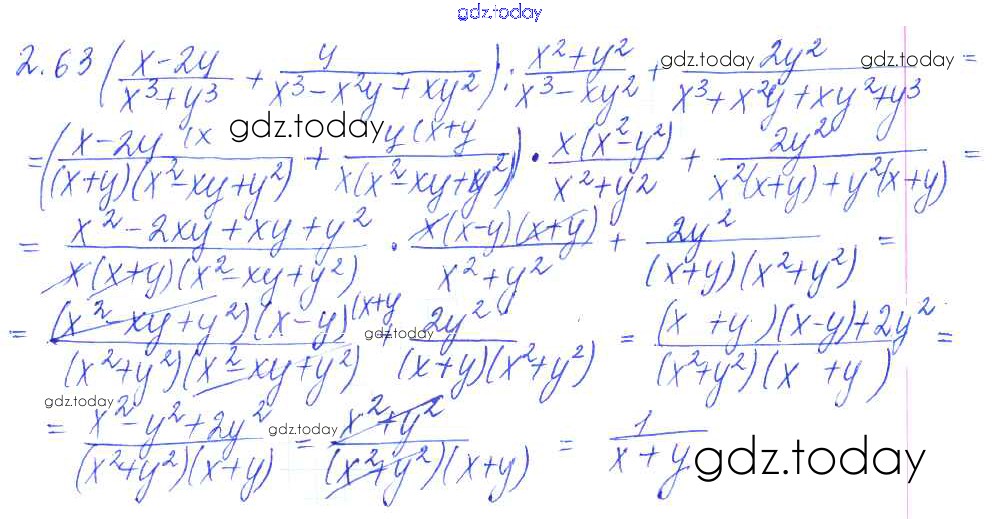 gdz.today
2.63 ((x-2y)/(x³+y³) + y/(x³-x²y+xy²)) : (x²+y²)/(x³-xy²) + 2y²/(x³+x²y+xy²+y³) = gdz.today gdz.today
= ((x-2y (x)/((x+y)(x²-xy+y²)) + (y(x+y)/(x(x²-xy+y²))) · x(x²-y²)/(x²+y²) + 2y²/(x²(x+y)+y²(x+y)) = gdz.today
= (x²-2xy+xy+y²)/(x(x+y)(x²-xy+y²)) · x(x-y)(x+y)/(x²+y²) + 2y²/((x+y)(x²+y²)) =
= (x²-xy+y²)(x-y)(x+y/((x²+y²)(x²-xy+y²)) + 2y²/((x+y)(x²+y²)) = ((x+y)(x-y)+2y²)/((x²+y²)(x+y)) = gdz.today
gdz.today
= (x²-y²+2y²)/((x²+y²)(x+y)) = (x²+y²)/((x²+y²)(x+y)) = 1/(x+y) gdz.today gdz.today